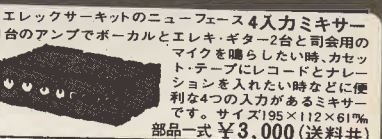 エレックサーキットのニューフェース4入力ミキサー
1台のアンプでボーカルとエレキ・ギター2台と司会用の
マイクを鳴らしたい時、カセッ
ト・テープにレコードとナレー
ションを入れたい時などに便
利な4つの入力があるミキサー
です。サイズ195×112×61㎜
部品一式¥3,000(送料共)